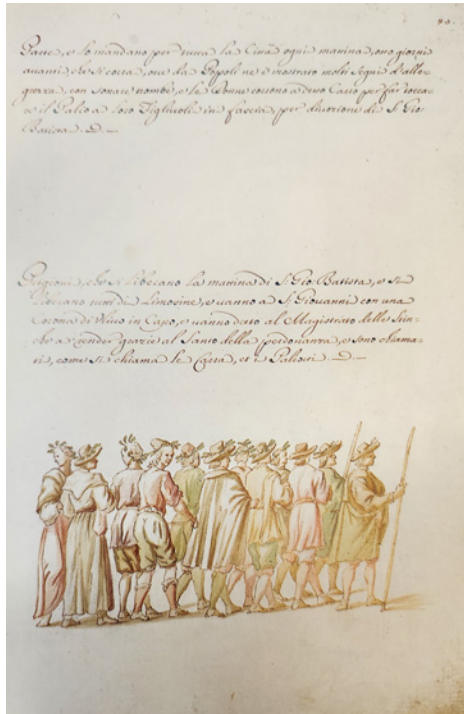 Parte, e lo mandano per tutta la Città ogni matina, otto giorni
avanti, che si corra, ove da Popoli ne è mostrato molti segni d'alle-
grezza, con sonare trombe, e le Donne corrono a detto Carro per far tocca-
re il Palio a loro Figliuoli in fascia, per divozione di S. Gio:
Batista.
Prigioni, che si liberano la matina di S. Gio: Batista, e si
liberano tutti di Limosine, e vanno a S. Giovanni con una
Corona di Ulivo in Capo, e vanno dreto al Magistrato delle Stin-
che a render grazie al Santo della perdonanza, e sono chiama-
ti, come si chiama le Carra, et i Paliotti.